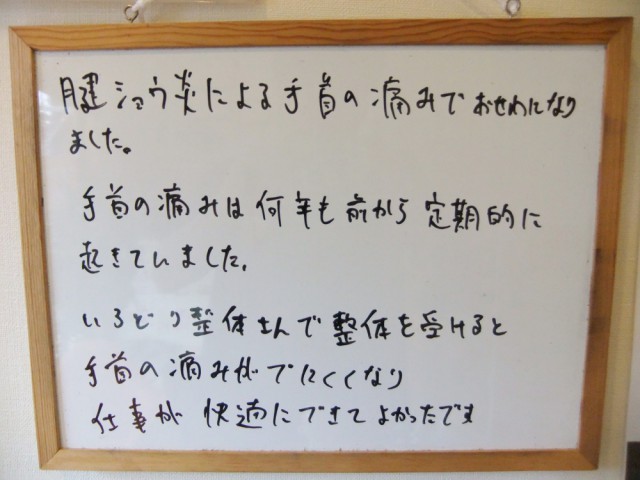 腱ショウ炎による手首の痛みでおせわになり
ました。
手首の痛みは何年も前から定期的に
起きていました。
いろどり整体さんで整体を受けると
手首の痛みがでにくくなり
仕事が快適にできてよかったです